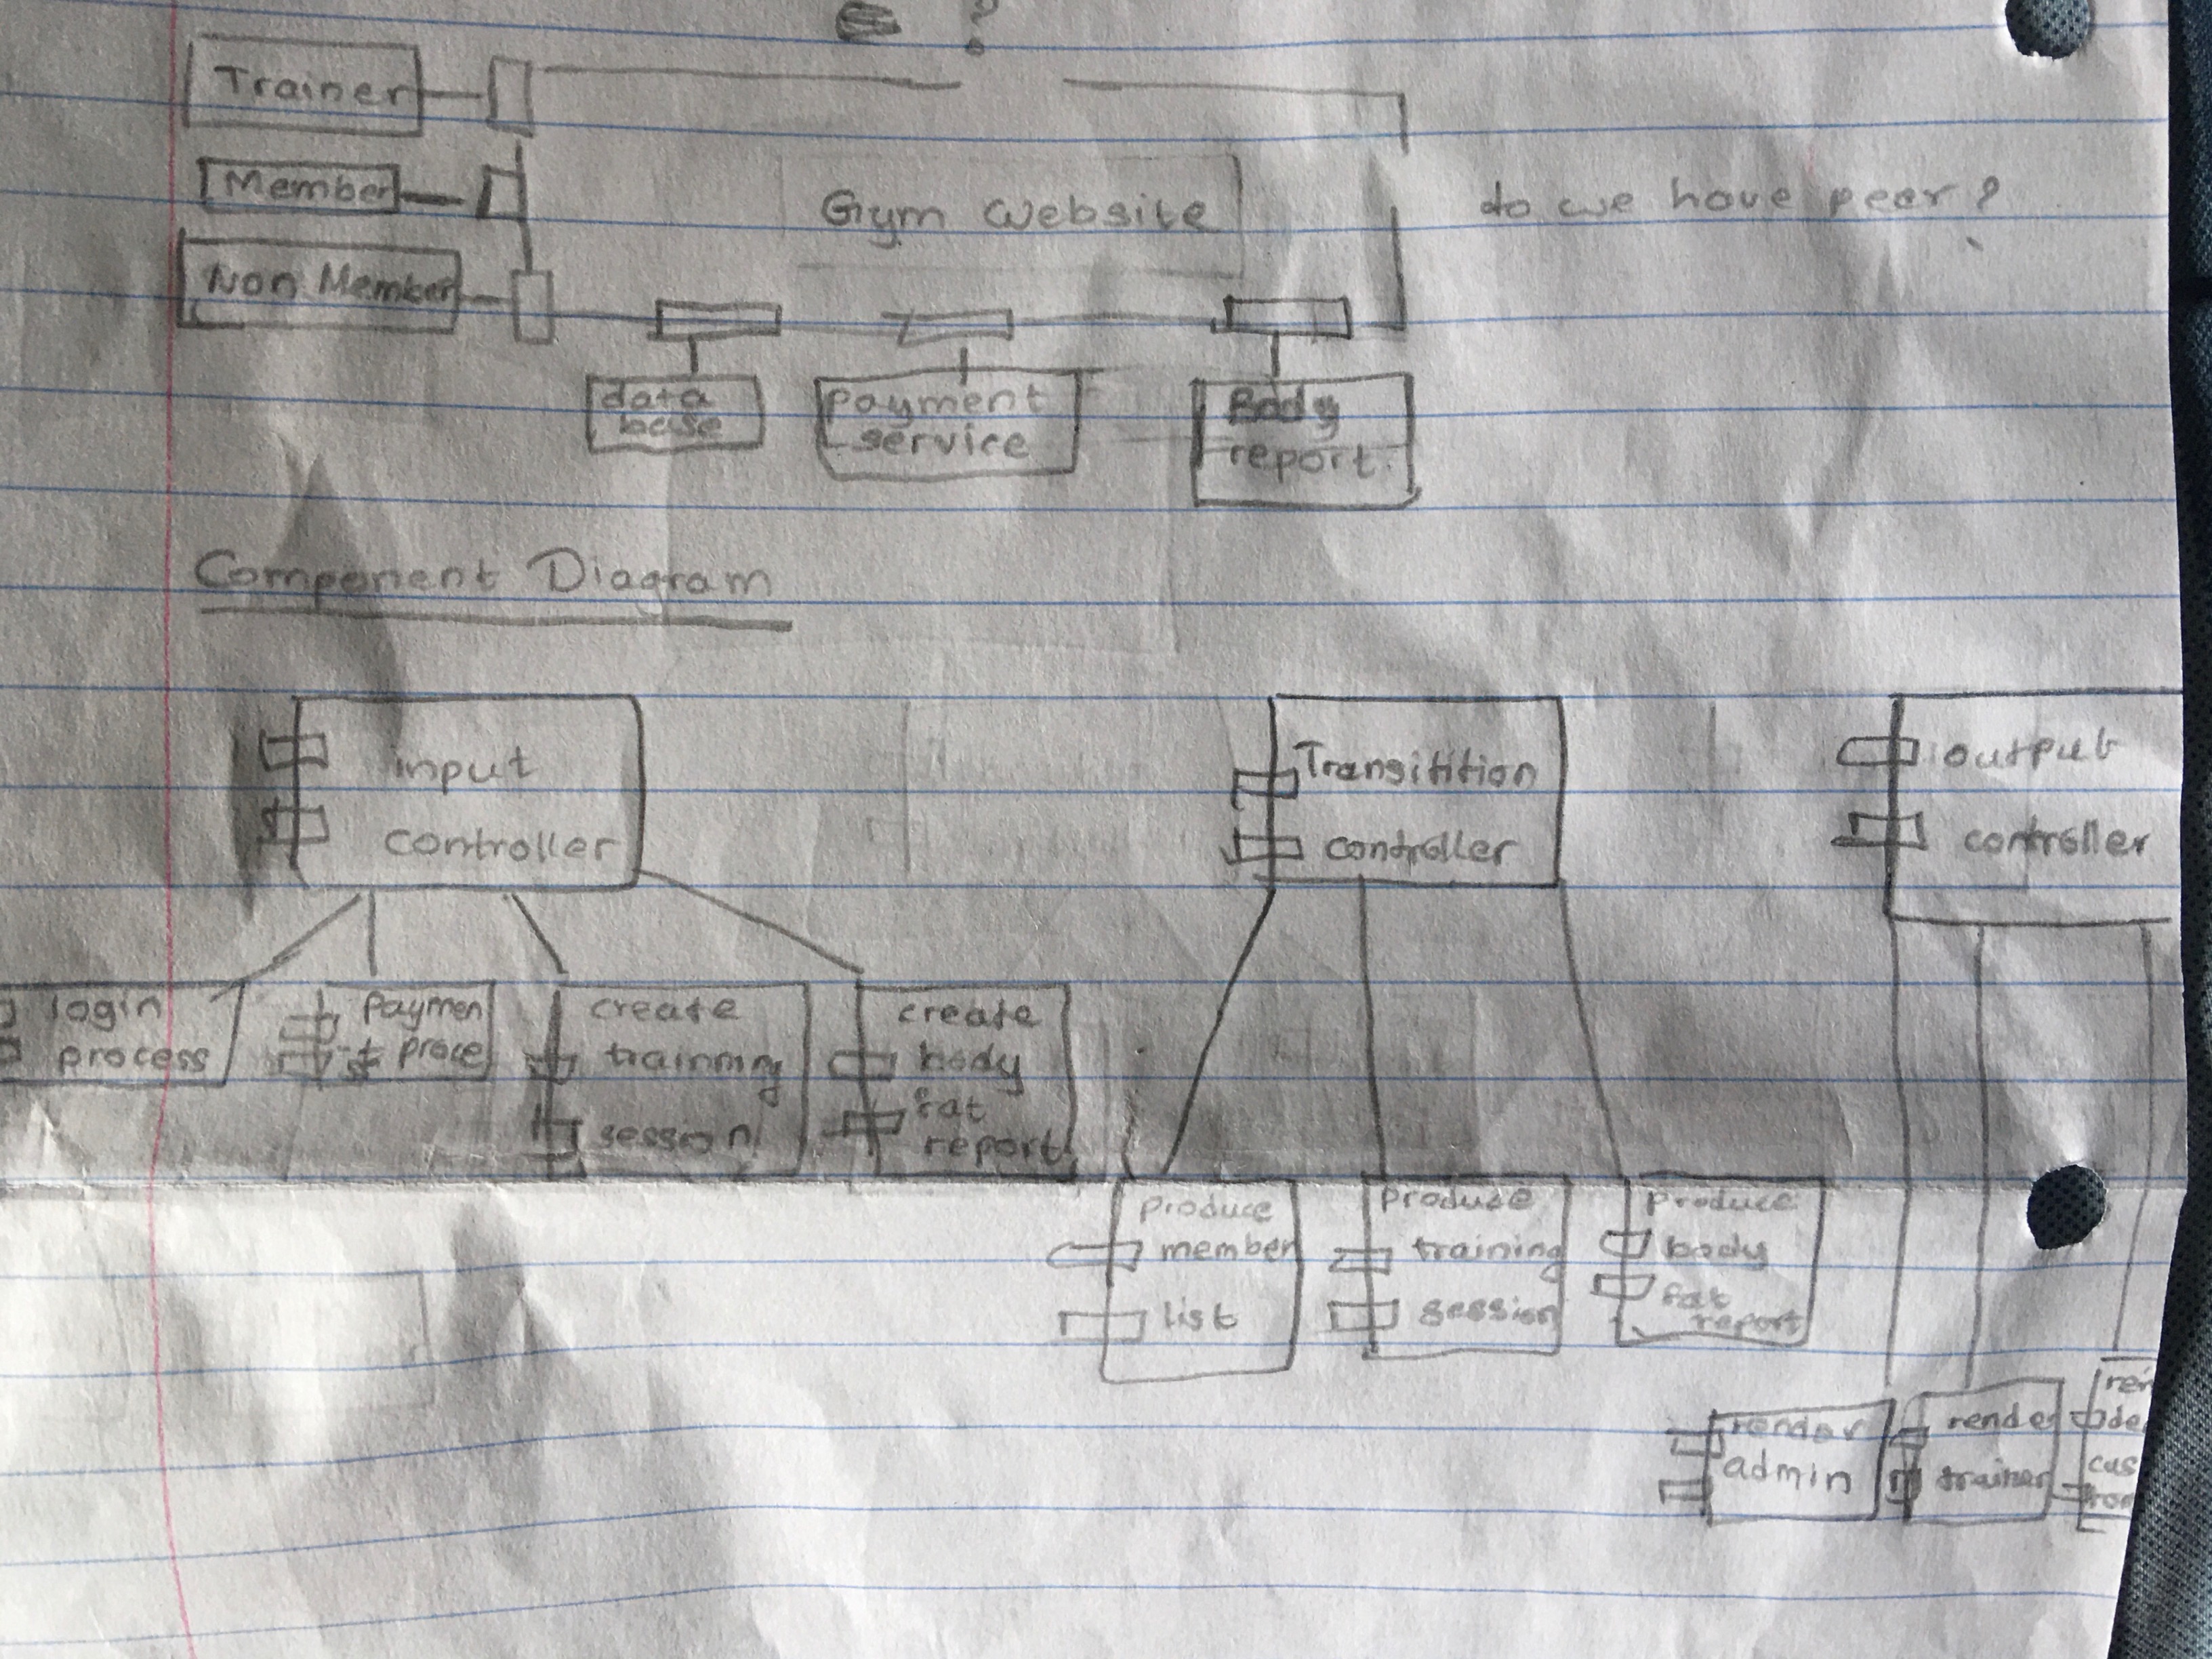 ?
Trainer
Member
Gym website
do we have pear?
Non Member
data
base
payment
service
Body
report.
Component Diagram
input
controller
Transitition
controller
output
controller
login
process
Paymen
t proce
create
training
session
create
body
fat
report
produce
member
list
produce
training
session
produce
body
fat
report
render
admin
rende
trainer
ren
der
cus
tom